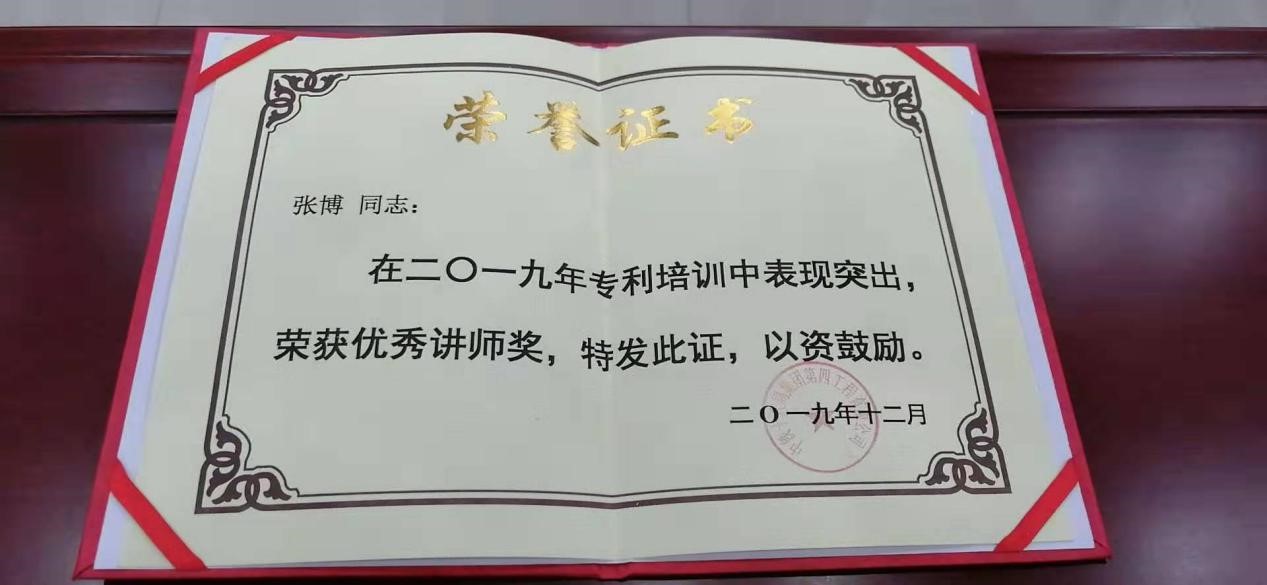 荣誉证书
张博 同志：
在二〇一九年专利培训中表现突出，
荣获优秀讲师奖，特发此证，以资鼓励。
集团第四工程有限公司
二〇一九年十二月